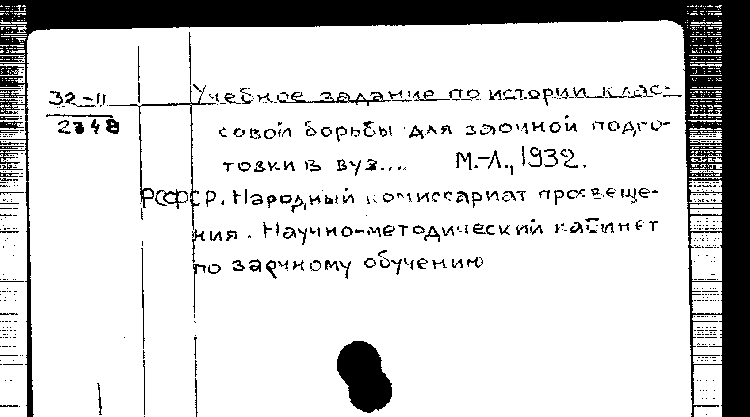 32-11
2348
Учебное задание по истории клас-
совой борьбы для заочной подго-
товки в вуз... М.-Л., 1932.
РСФСР. Народный комиссариат просвеще-
ния. Научно-методический кабинет
по заочному обучению